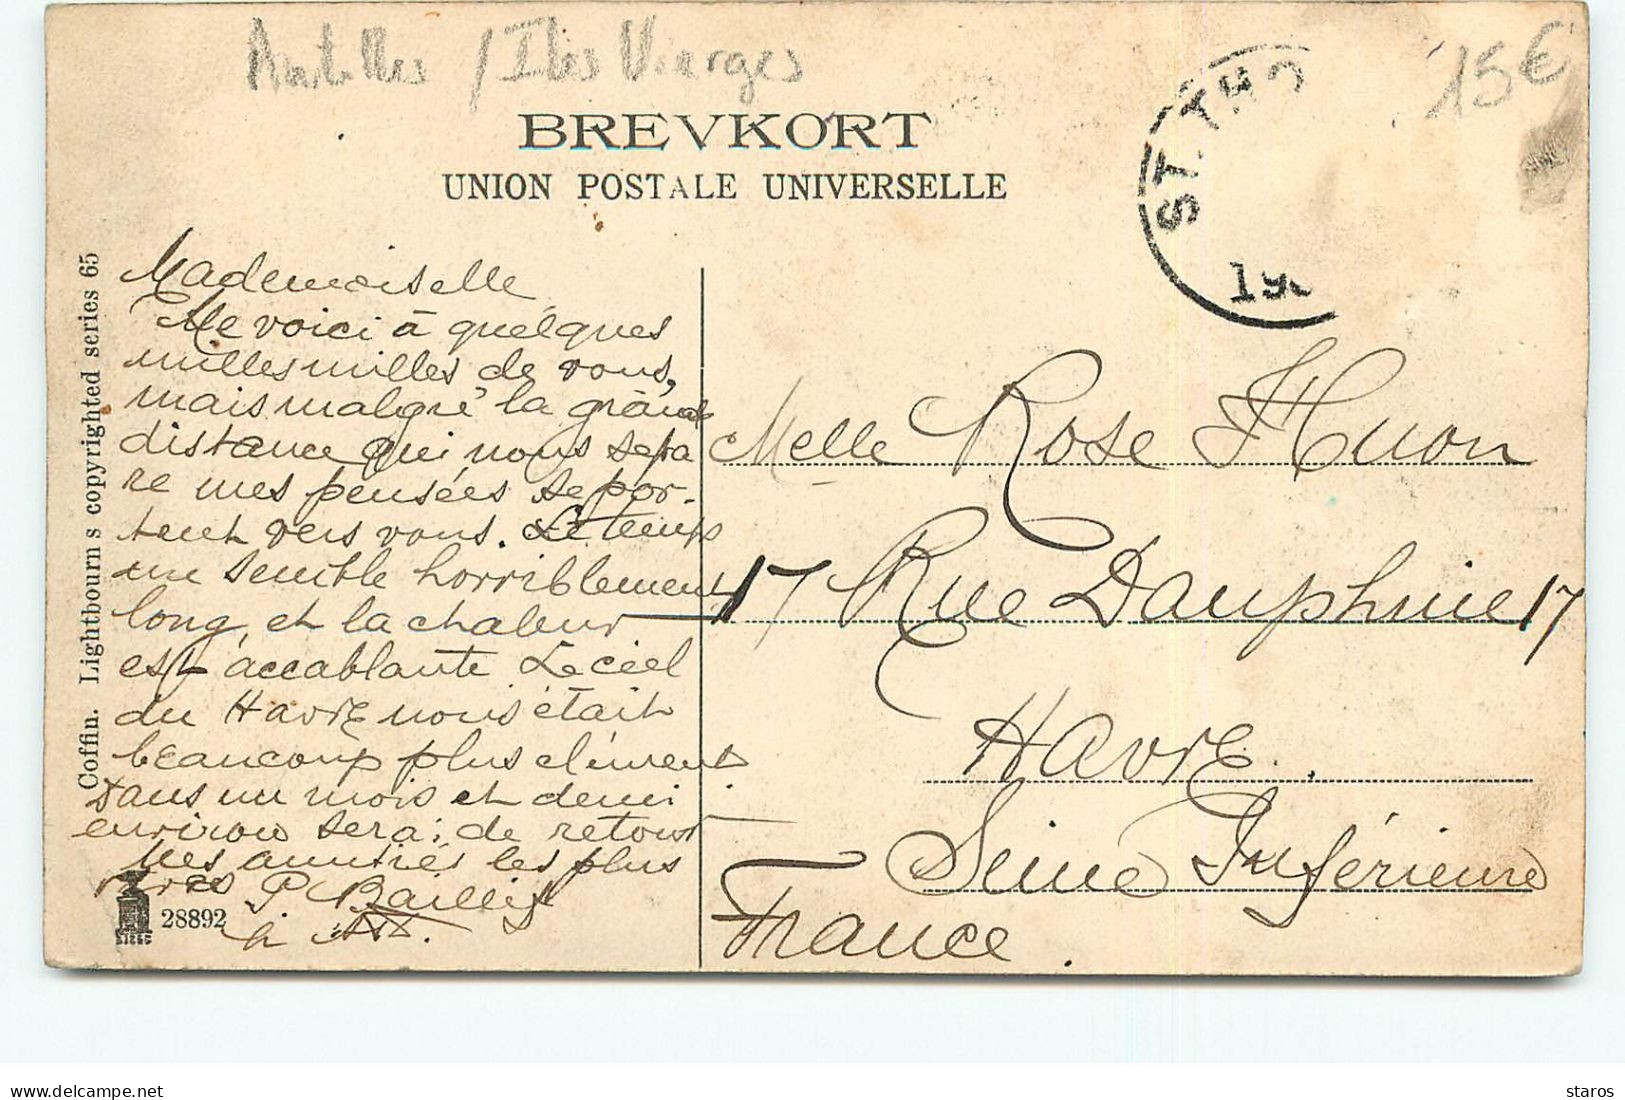 Antilles / Iles Vierges
15€
BREVKORT
UNION POSTALE UNIVERSELLE
ST. THO
190
Coffin. Lightbourn s copyrighted series 65
Mademoiselle,
Me voici à quelques
milles milles de vous,
mais malgré la grande
distance qui nous sépa
re mes pensées se por-
tent vers vous. Le temps
me semble horriblement
long, et la chaleur
est accablante Le ciel
du Havre nous était
beaucoup plus clément.
Dans un mois et demi
environ serai de retour
Mes amitiés les plus
P Baillif
28892
Melle Rose Huon
17 Rue Dauphine 17
Havre.
Seine Inférieure
France.
www.delcampe.net
staros